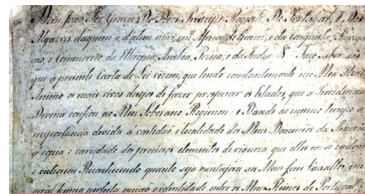 Dom João Por Graça De Deos Principe Regente De Portugal, e Dos
Algarves daquem, e d'alem mar, em Africa de Guiné, e da Conquista, Navega
ção, e Commercio da Ethiopia, Arabia, Persia, e da India &. Faço saber aos
que a presente Carta de Lei virem, que tendo constantemente em Meu Real
Animo os mais vivos desejos de fazer prosperar os Estados, que a Providencia
Divina confiou ao Meu Soberano Regimen: e Dando ao mesmo tempo a
importancia devida á vastidão, e localidade dos Meus Dominios da America
á copia, e variedade dos preciosos elementos de riqueza que elles em si contem
e outrosim Reconhecendo quanto seja vantajosa aos Meus fieis Vassallos em
geral huma perfeita união, e identidade entre os Meus Reinos de Portugal